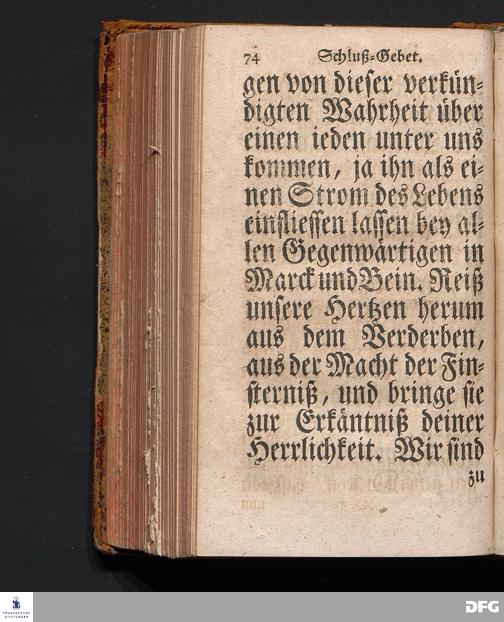 74 Schluß-Gebet.
gen von dieser verkün-
digten Wahrheit über
einen ieden unter uns
kommen, ja ihn als ei-
nen Strom des Lebens
einfliessen lassen bey al-
len Gegenwärtigen in
Marck und Bein. Reiß
unsere Hertzen herum
aus dem Verderben,
aus der Macht der Fin-
sterniß, und bringe sie
zur Erkäntniß deiner
Herrlichkeit. Wir sind
zu
FRANCKESCHE
STIFTUNGEN
DFG